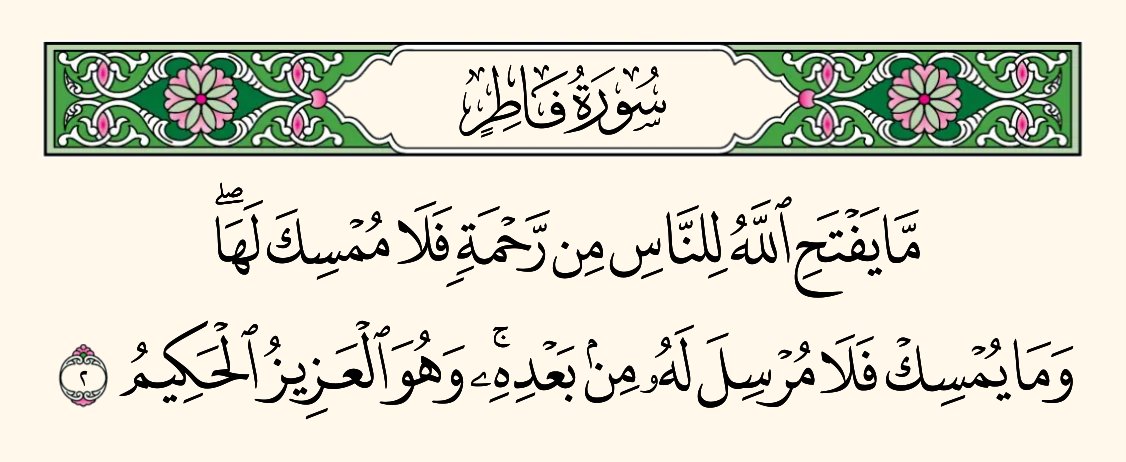 سُورَةُ فَاطِرٍ
مَّا يَفْتَحِ ٱللَّهُ لِلنَّاسِ مِن رَّحْمَةٍ فَلَا مُمْسِكَ لَهَاۖ
وَمَا يُمْسِكْ فَلَا مُرْسِلَ لَهُۥ مِنۢ بَعْدِهِۦۚ وَهُوَ ٱلْعَزِيزُ ٱلْحَكِيمُ ٢